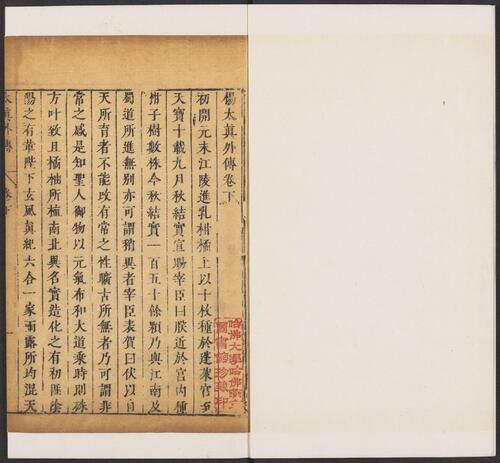 楊太真外傳卷下
初開元末江陵進乳柑橘上以十枚種於蓬萊宮至
天寶十載九月秋結實宣賜宰臣曰朕近於宮內種
柑子樹數株今秋結實一百五十餘顆乃與江南及
蜀道所進無別亦可謂稍異者宰臣表賀曰伏以自
天所育者不能改有常之性曠古所無者乃可謂非
常之感是知聖人御物以元氣布和大道乘時則殊
方叶致且橘柚所植南北異名實造化之有初匪陰
陽之有革陛下玄風真紀六合一家雨露所均混天
太真外傳
卷下
哈佛大學哈佛燕京
圖書館珍藏印